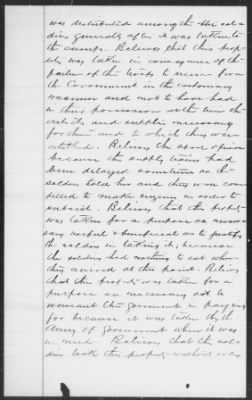 was distributed among the sol
diers generally after it was taken to
the camp. Believes that this prop
erty was taken in consequence of the
failure of the troops to receive from
the Government in the customary
manner and not to have had
in their possession at the time the
articles and supplies necessary
for them and to which they were
entitled. Believes the above opinion
because the supply trains had
been delayed sometime as the
soldiers told her and they were com
pelled to make in order to
subsist. Believes that the property
was taken for a purpose so neces
sary useful & beneficial as to justify
the soldiers in taking it, because
the soldiers had nothing to eat when
they arrived at this point. Believes
that this property was taken for a
purpose so necessary as to
warrant the Government in paying
for because it was taken by the
Army of Government when it was
in need. Believes that the sol
diers took this property without order